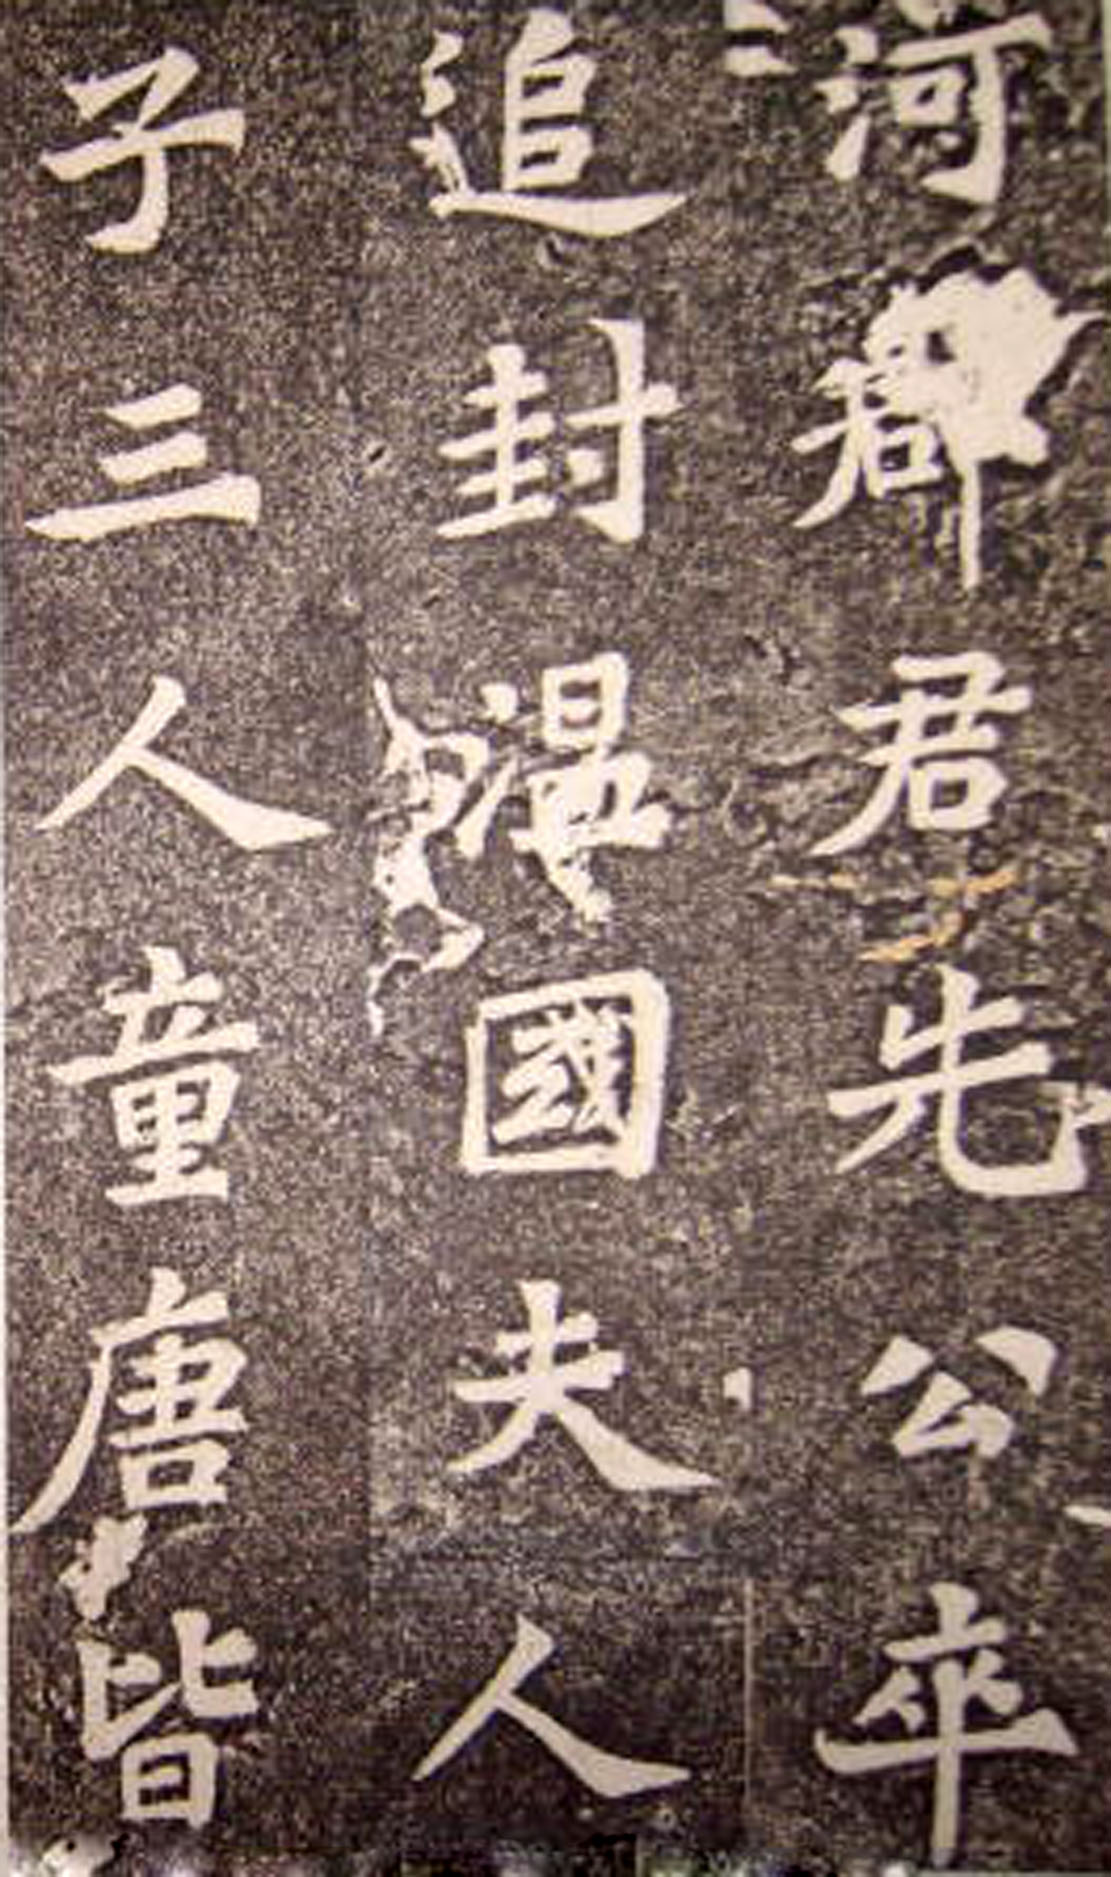 河郡君先公卒
追封温國夫人
子三人童唐皆